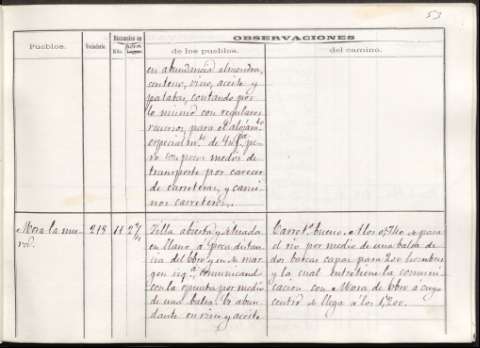 53
Pueblos.
Vecindario.
Distancias en
Kils.
OBSERVACIONES
de los pueblos.
del camino.
en abundancia almendra,
centeno, vino, aceite y
patatas, contando por
lo mismo con regulares
recursos, para el alojamto
especialmte de
pero con pocos medios de
transporte por carecer
de carreteras, y caminos
carreteros.
Mora la nueva
218
14
Villa abierta y situada
en llano, á poca distancia
del Ebro y en su margen
izqa, comunicando
con la opuesta por medio
de una balsa. Es abundante
en vino y aceite
Carrota bueno. A los se pasa
el río por medio de una balsa de
dos barcas capaz para 200 hombres
y la cual entretiene la comunicacion
con Mora de Ebro á cuyo
centro se llega á los 1,200.